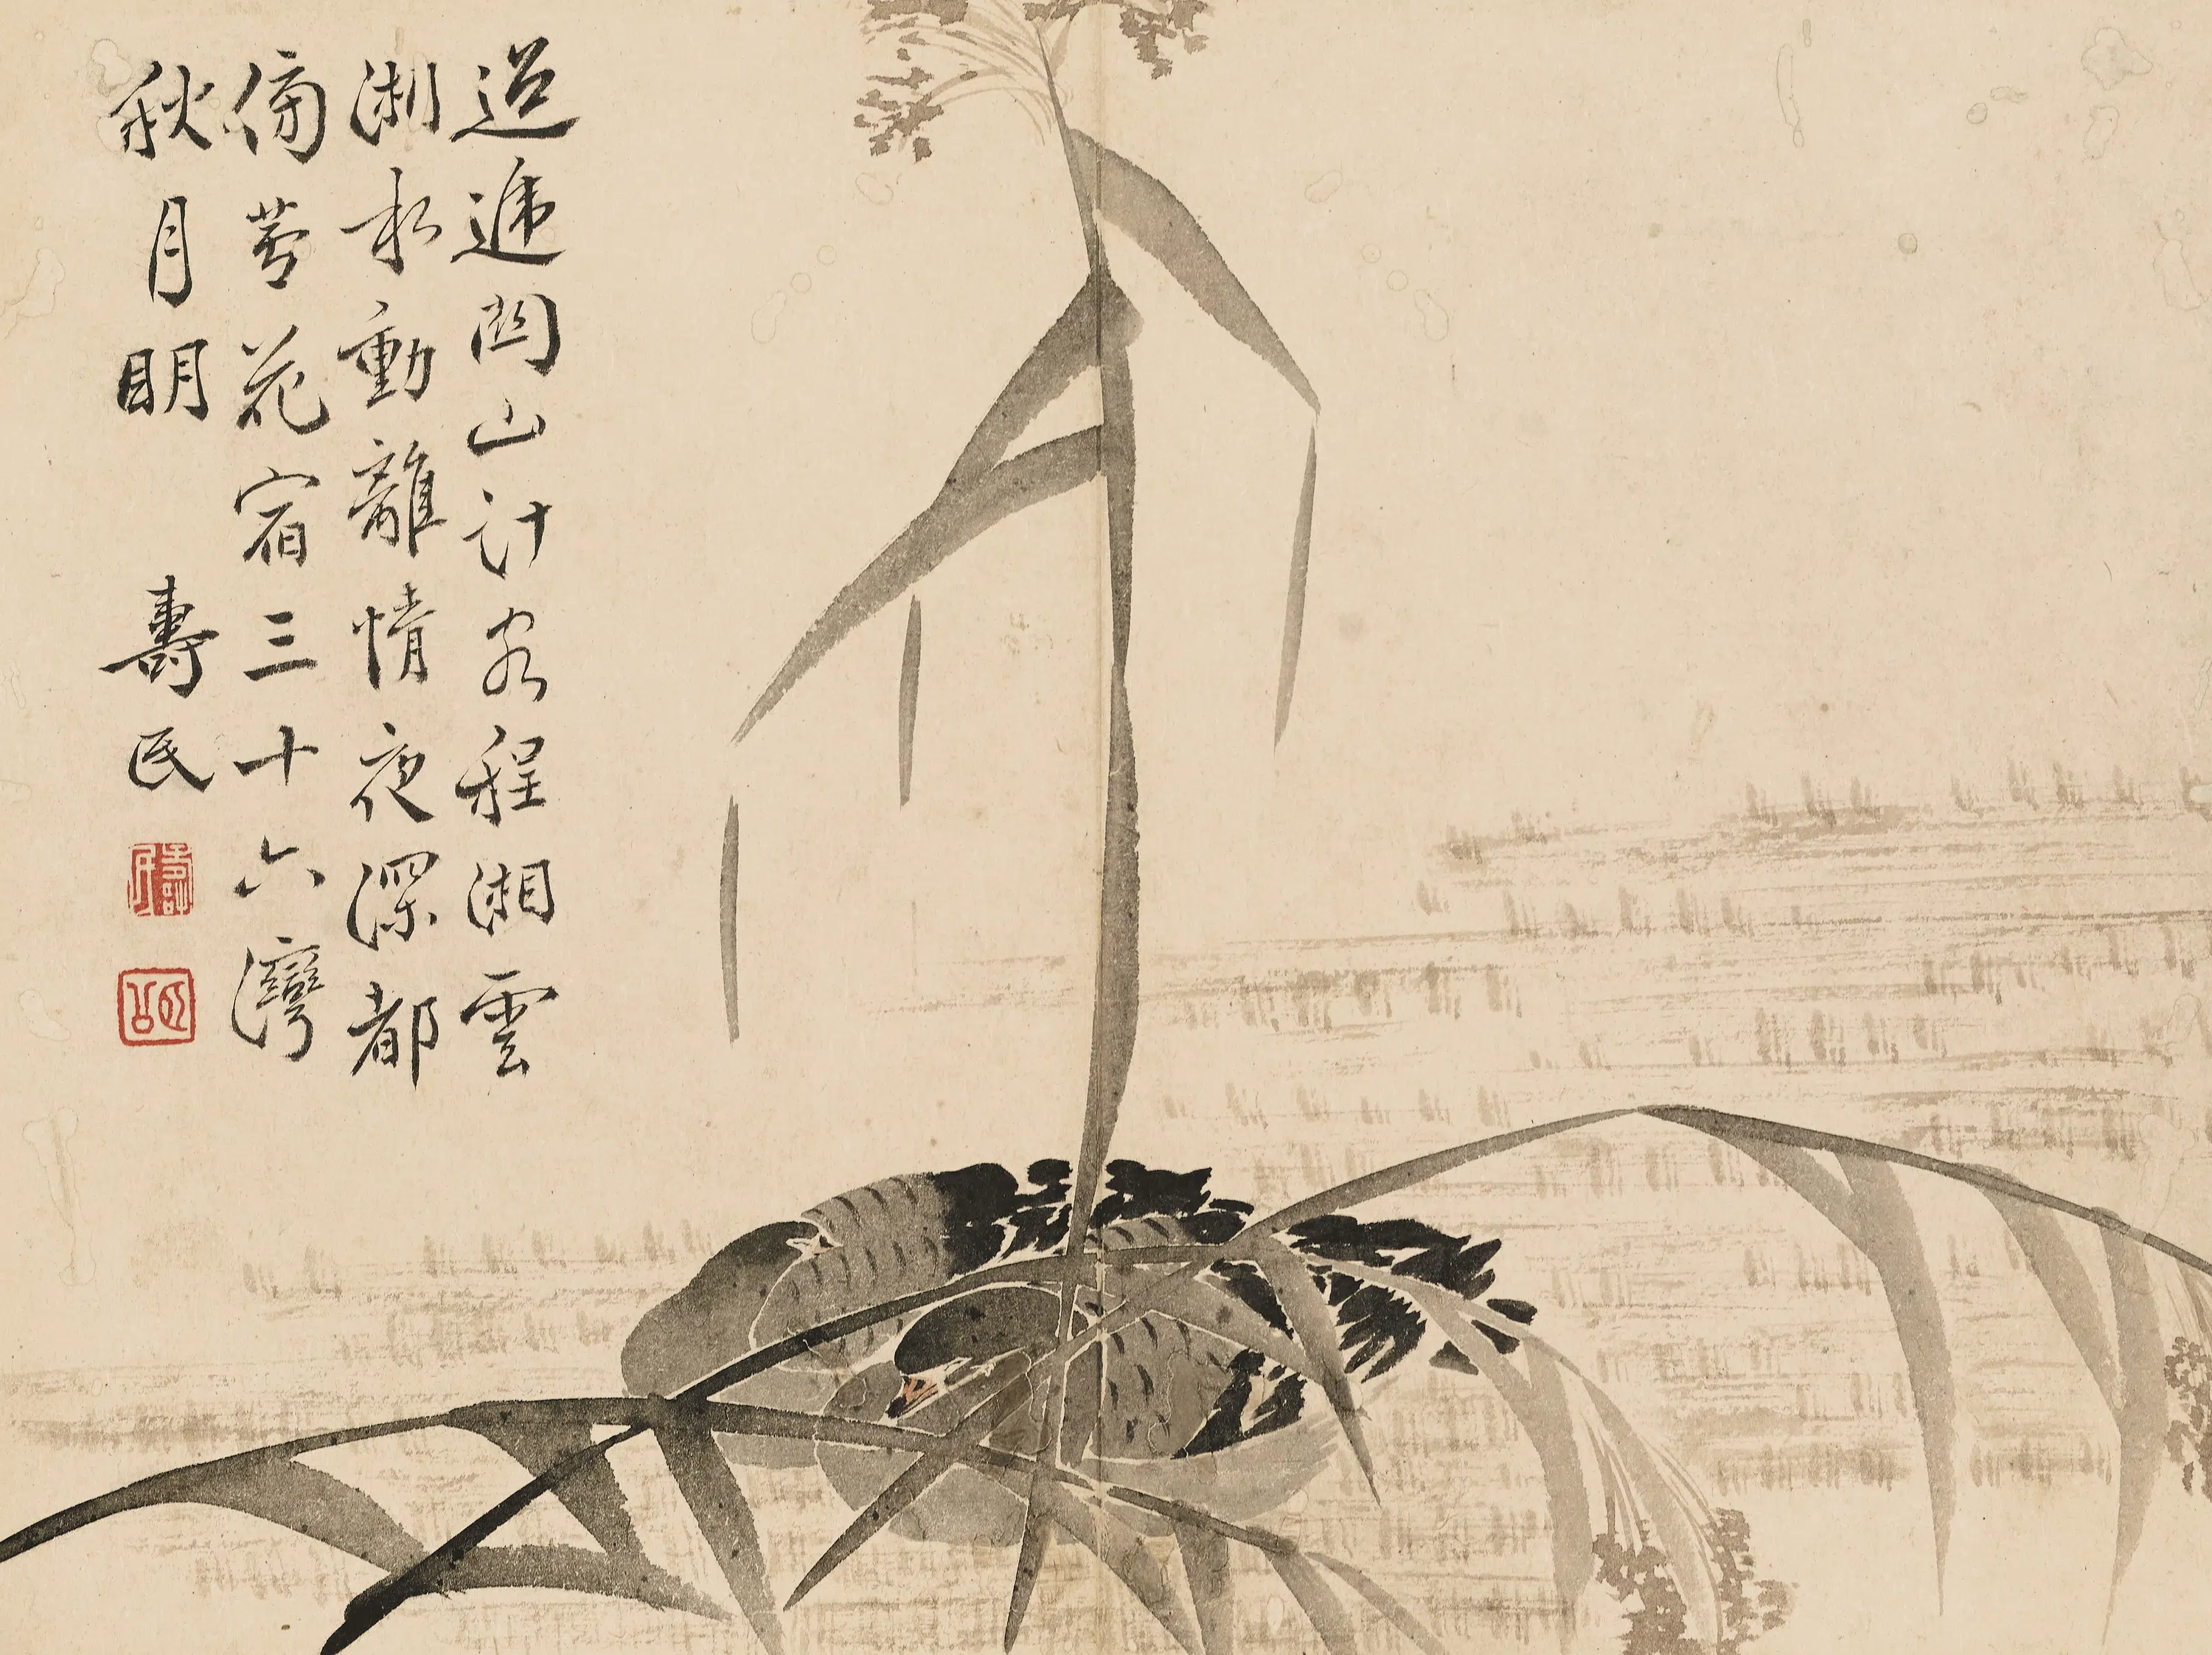 迢遞關山計客程湘雲
湘水動離情夜深都
傍蘆花宿三十六灣
秋月明 壽民